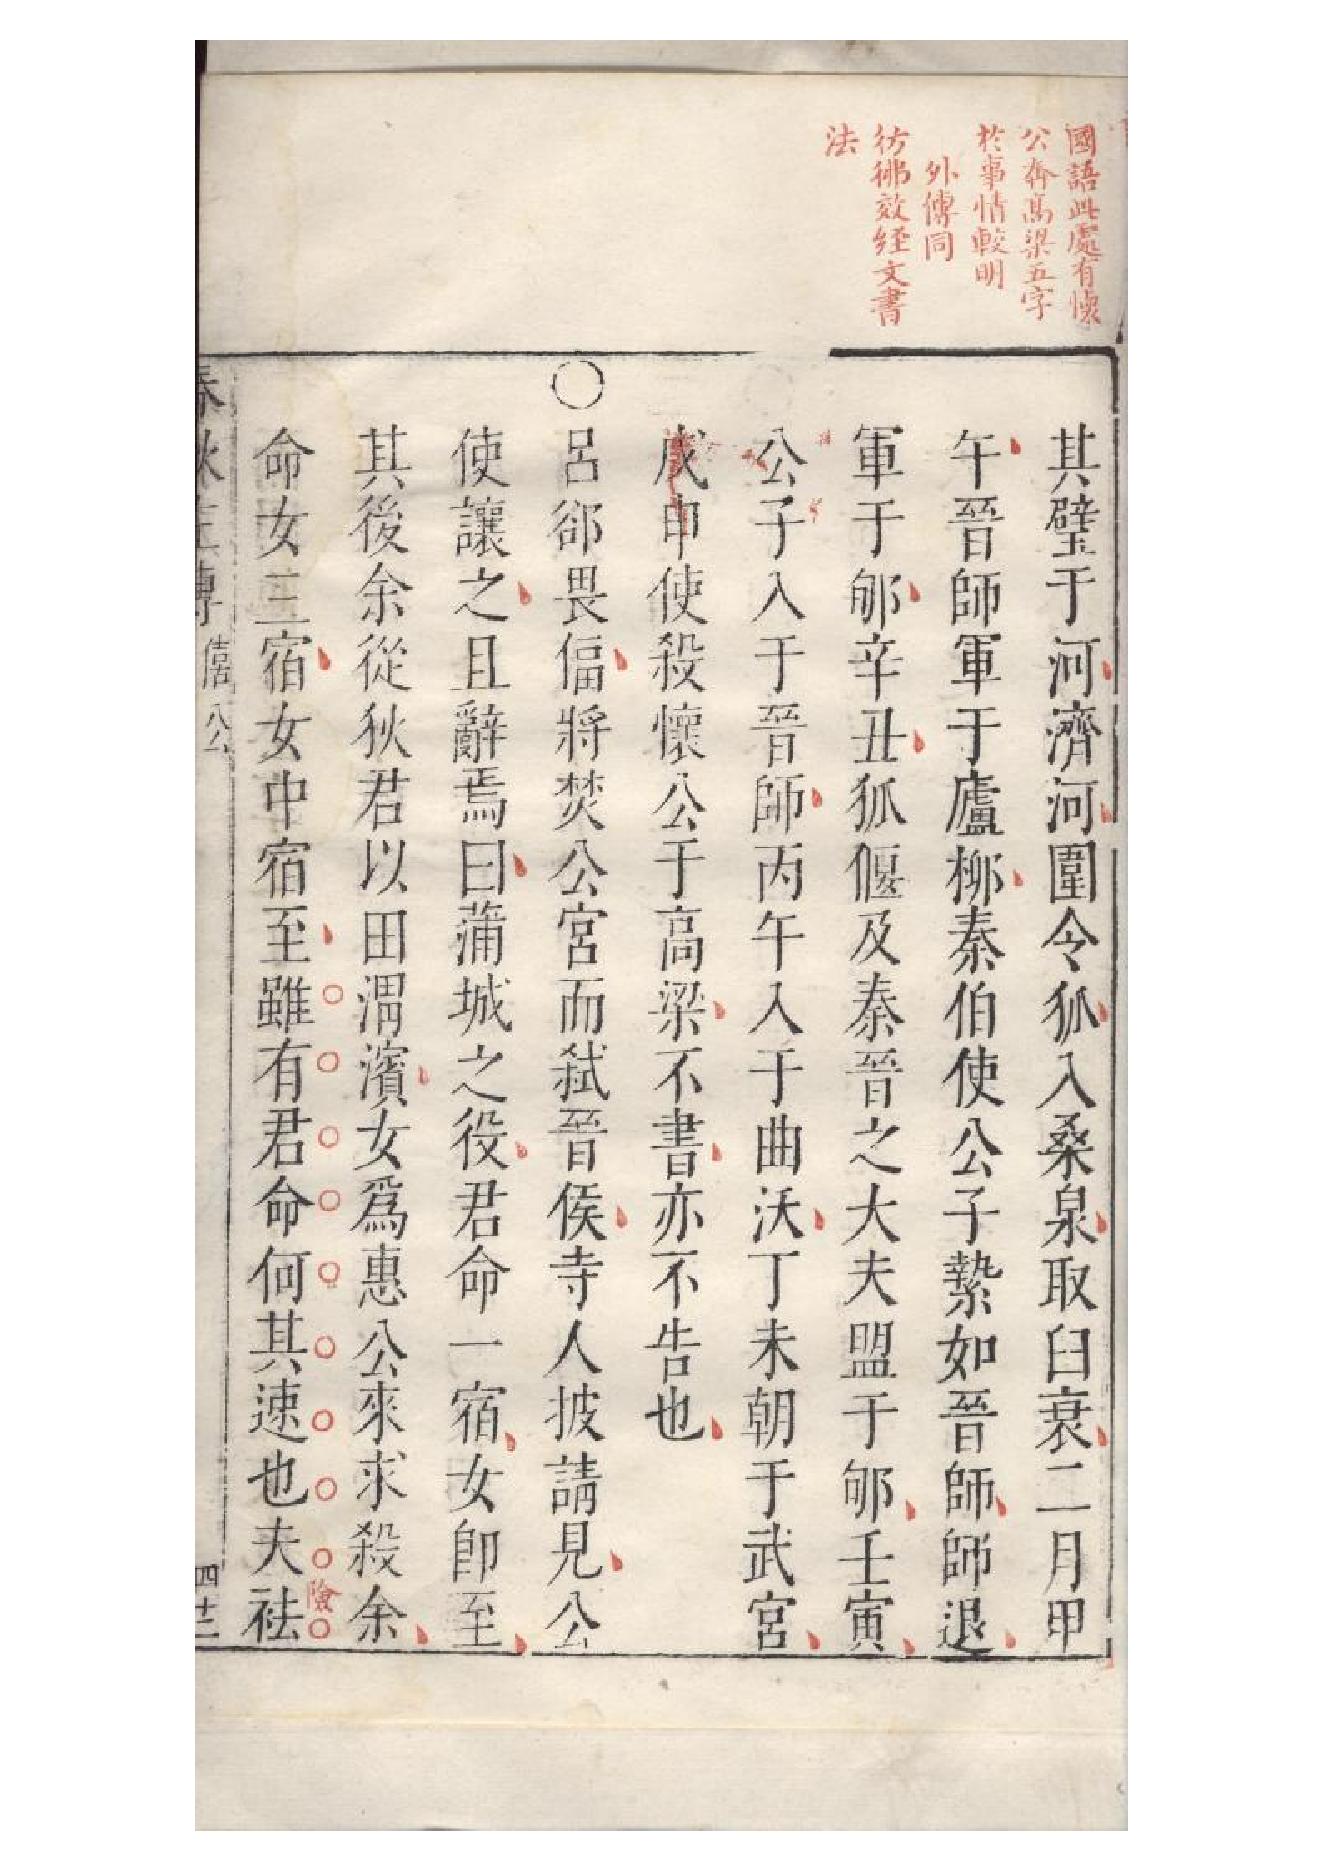 國語此處有懷
公奔高梁五字
於事情較明
外傳同
彷彿效經文書
法
其璧于河濟河圍令狐入桑泉取臼衰二月甲
午晉師軍于廬柳秦伯使公子縶如晉師師退
軍于郇辛丑狐偃及秦晉之大夫盟于郇壬寅
公子入于晉師丙午入于曲沃丁未朝于武宮
戊申使殺懷公于高梁不書亦不告也
○呂郤畏偪將焚公宮而弑晉侯寺人披請見公
使讓之且辭焉曰蒲城之役君命一宿女卽至
其後余從狄君以田渭濱女爲惠公來求殺余
命女三宿女中宿至雖有君命何其速也夫袪
險
春秋左傳 僖公 四十二